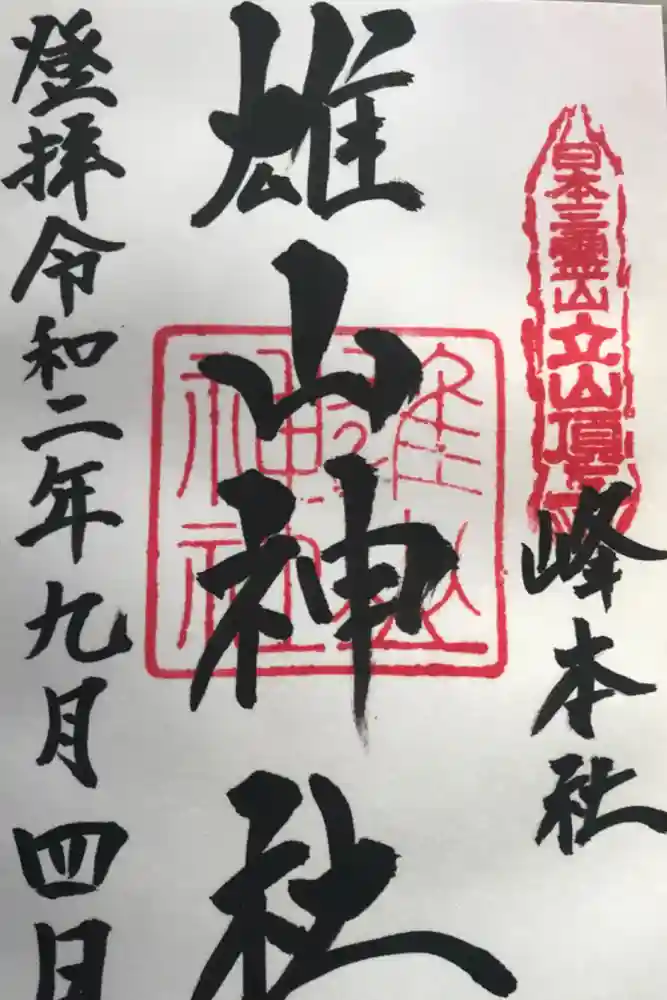 日本三霊山立山頂上
峰本社
雄山神社
雄山神社
登拝令和二年九月四日